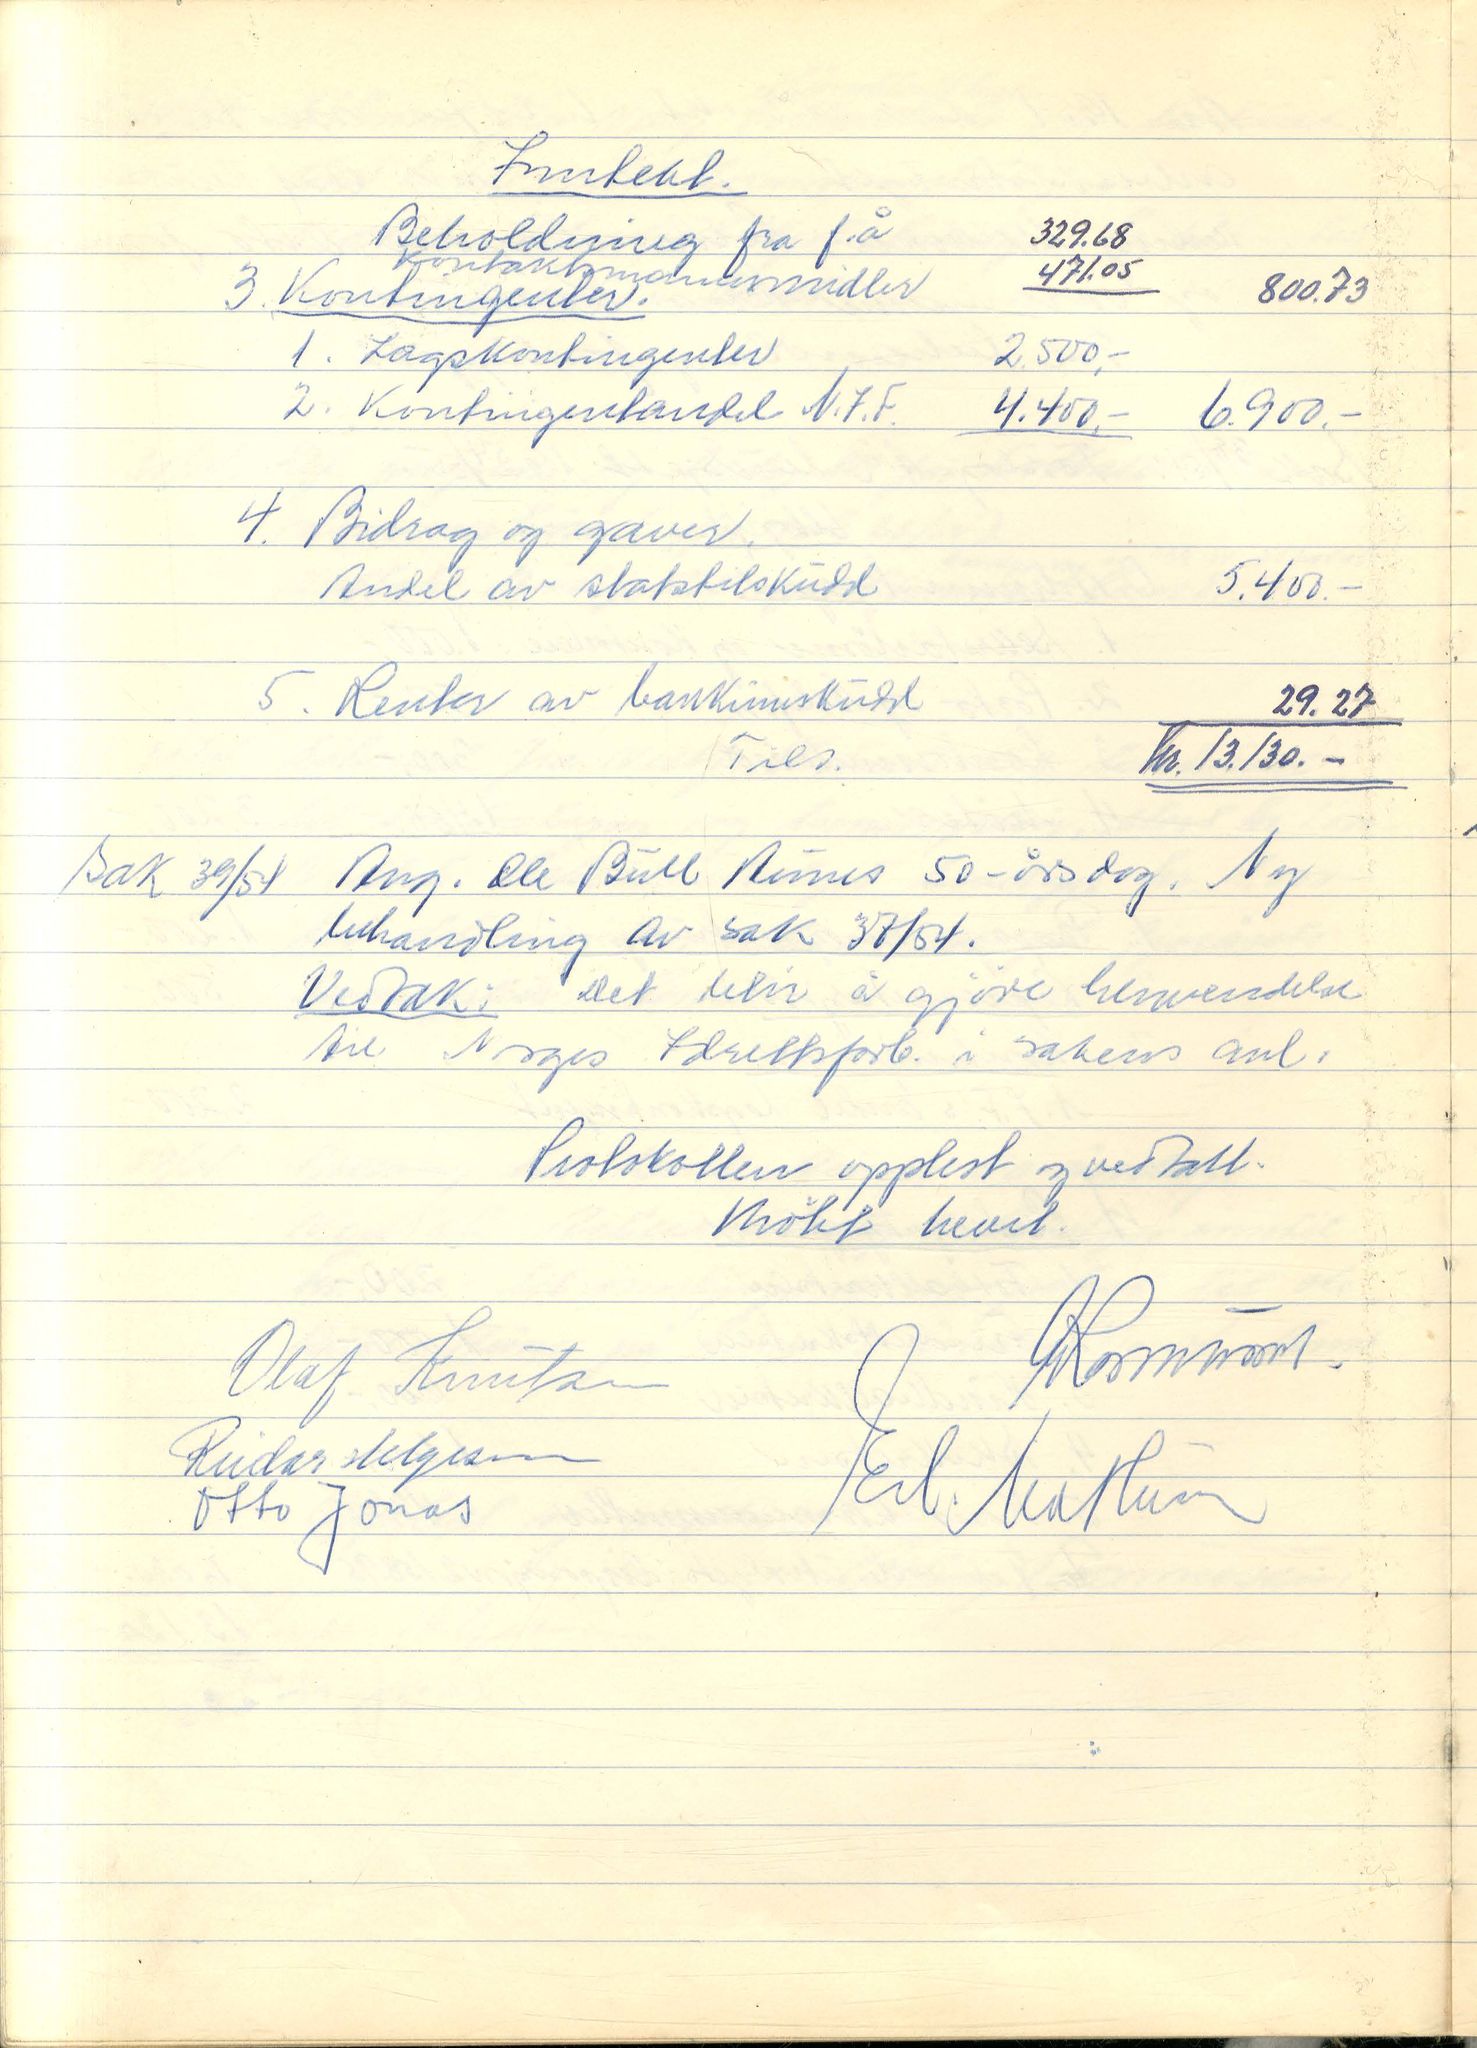 Inntekt.
Beholdning fra f.å 329.68
Kontaktmannsmidler 471.05 800.73
3. Kontingenter.
1. Lagskontingenter 2.500,-
2. Kontingentandel N.F.F. 4.400.- 6.900.-
4. Bidrag og gaver.
Andel av statstilskudd 5.400.-
5. Renter av bankinnskudd 29.27
Tils. kr. 13.130.-
Sak 39/54 Ang. Ole Bull Aunes 50-årsdag. Ny
behandling av sak 37/54.
Vedtak: Det blir å gjöre henvendelse
til Norges Idrettsforb. i sakens anl.
Protokollen opplest og vedtatt.
Mötet hevet.
Olaf Knutsen
Reidar Helgesen
Otto Jonas